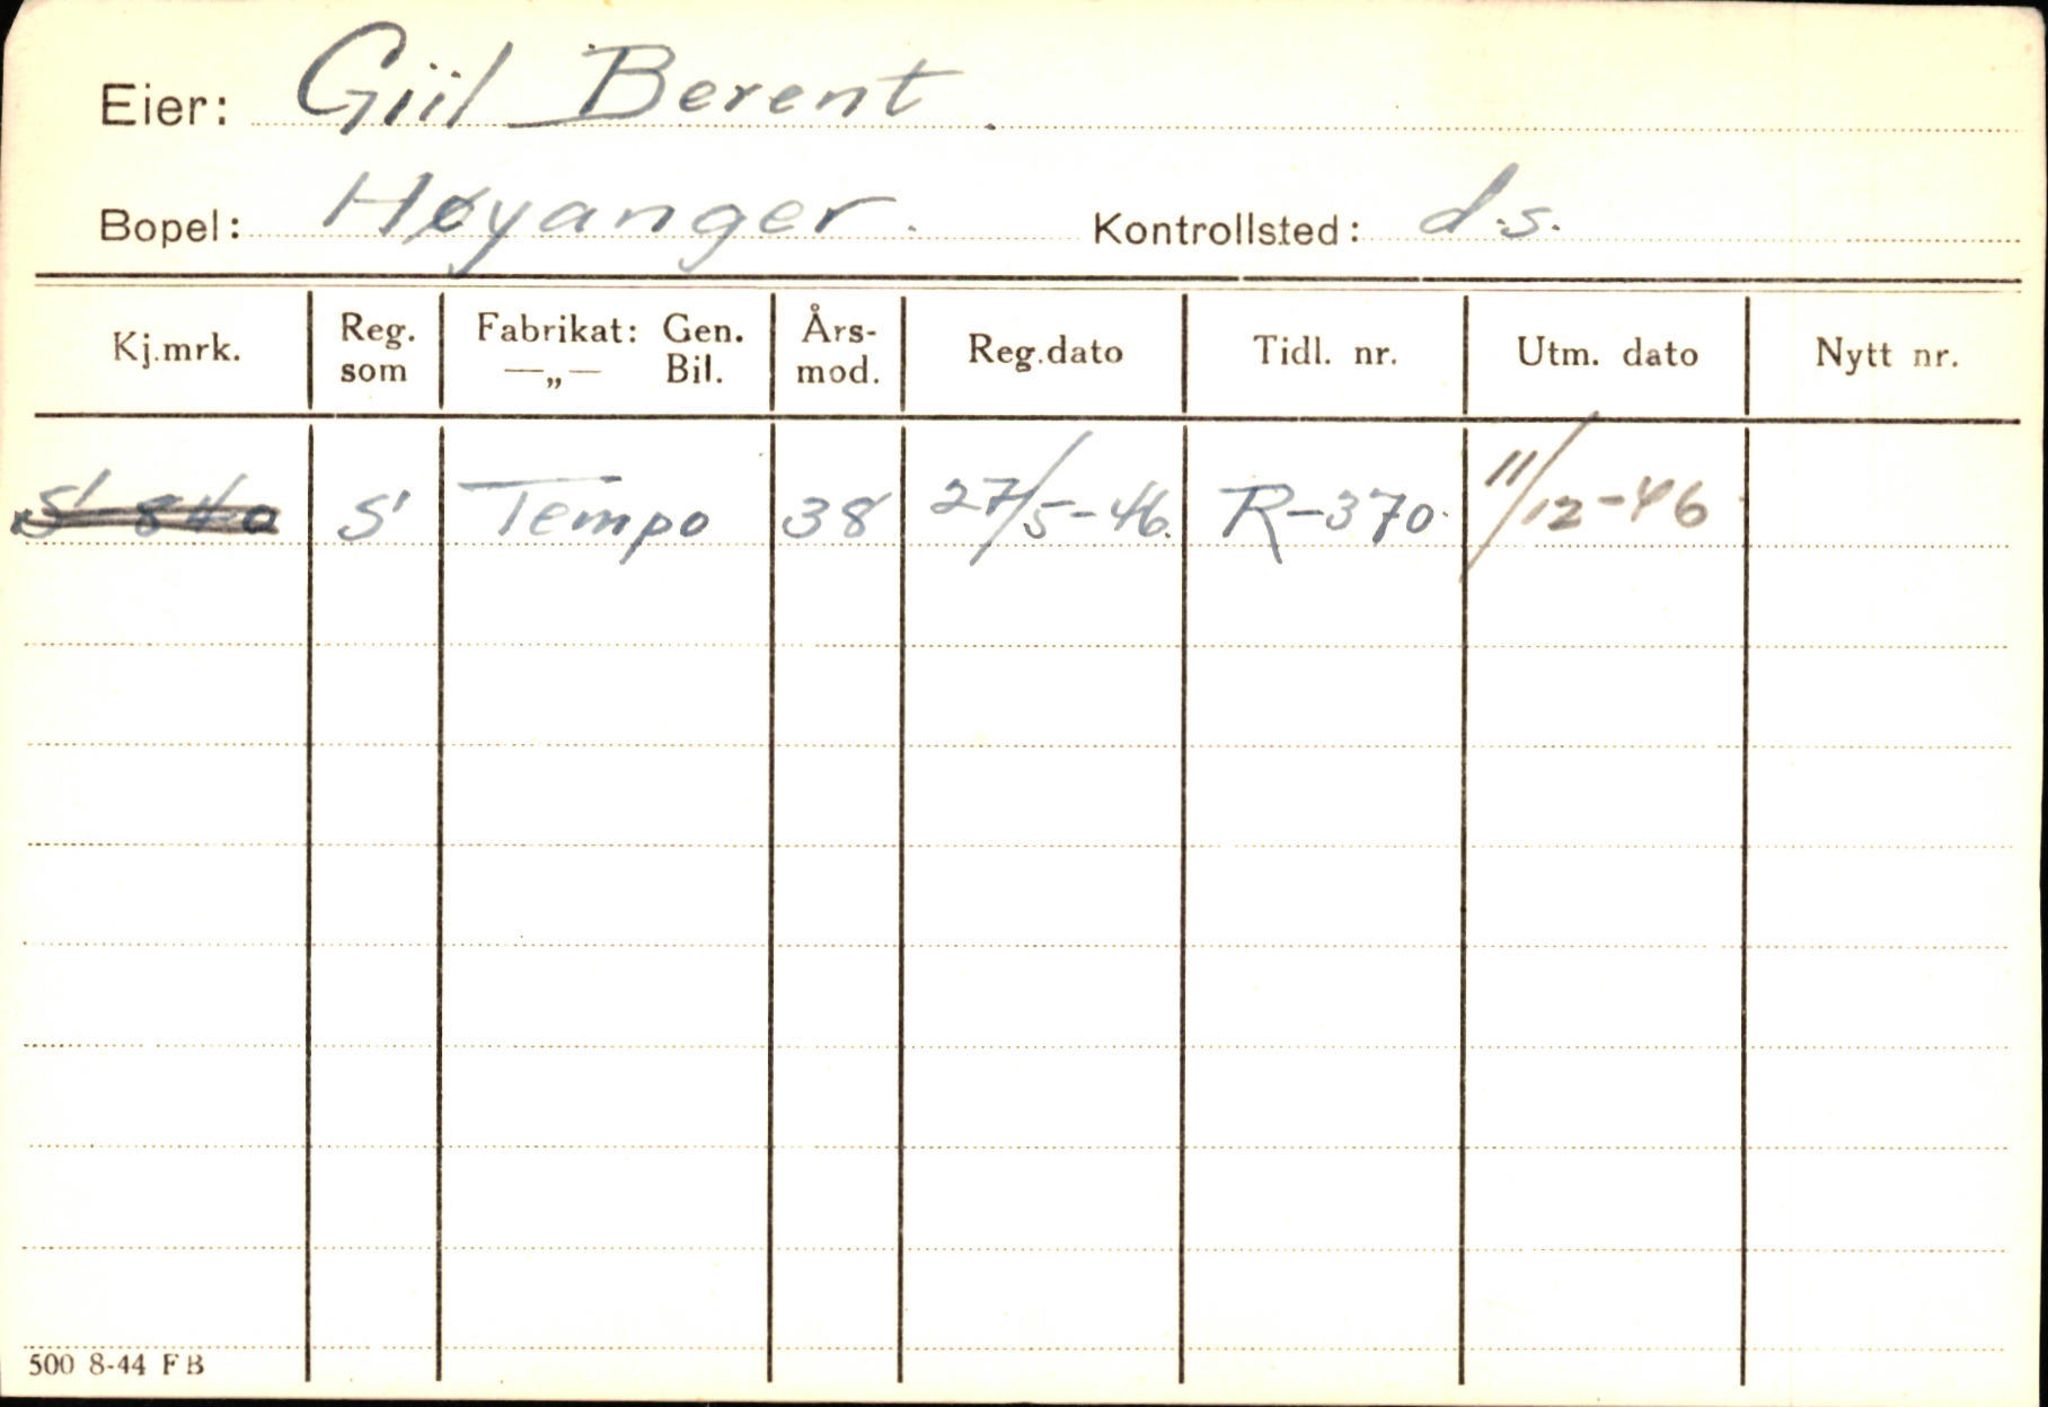 Eier: Giil Berent
Bopel: Høyanger. Kontrollsted: d.s.
Kj.mrk. Reg. som Fabrikat: Gen. —„— Bil. Års-mod. Reg.dato Tidl. nr. Utm. dato Nytt nr.
S-840 S Tempo 38 27/5-46. R-370. 11/12-46
500 8-44 FB